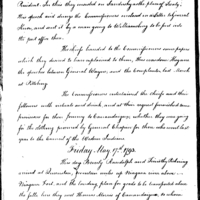 President. In this they wanted an Interview with plenty of Indy.
His speech and during the Commissioners enclosed in a letter to General
Knox, and sent it by a man going to Williamsburg to be put into
the post office there.
The Chiefs handed to the Commissioners some papers
which they desired to have explained to them. This was done. They are
the speeches between General Wayne, and the Complanter, last March
at Pittsburg.
The Commissioners entertained the Chiefs and their
fellows with victuals and drink, and at their request furnished some
provisions for their journey to Canandaigua, whether they were going
for the clothing provided by General Chapin for them who went last
year to the Council of the Western Indians.
Friday, May 17th, 1793.
This day Beverly Randolph and Timothy Pickering
moved at Queenston, provision made up Niagara river above
Niagara Fort, and the landing place for goods to be transported above
the falls. here they met Thomas Morris of Canandaigua, to whom